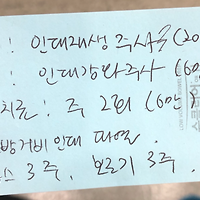 : 인대재생 주사 (20
: 인대강화주사 (6만
치료 : 주 2회 (6만)
방거비인대 파열.
스 3주, 보조기 3주.